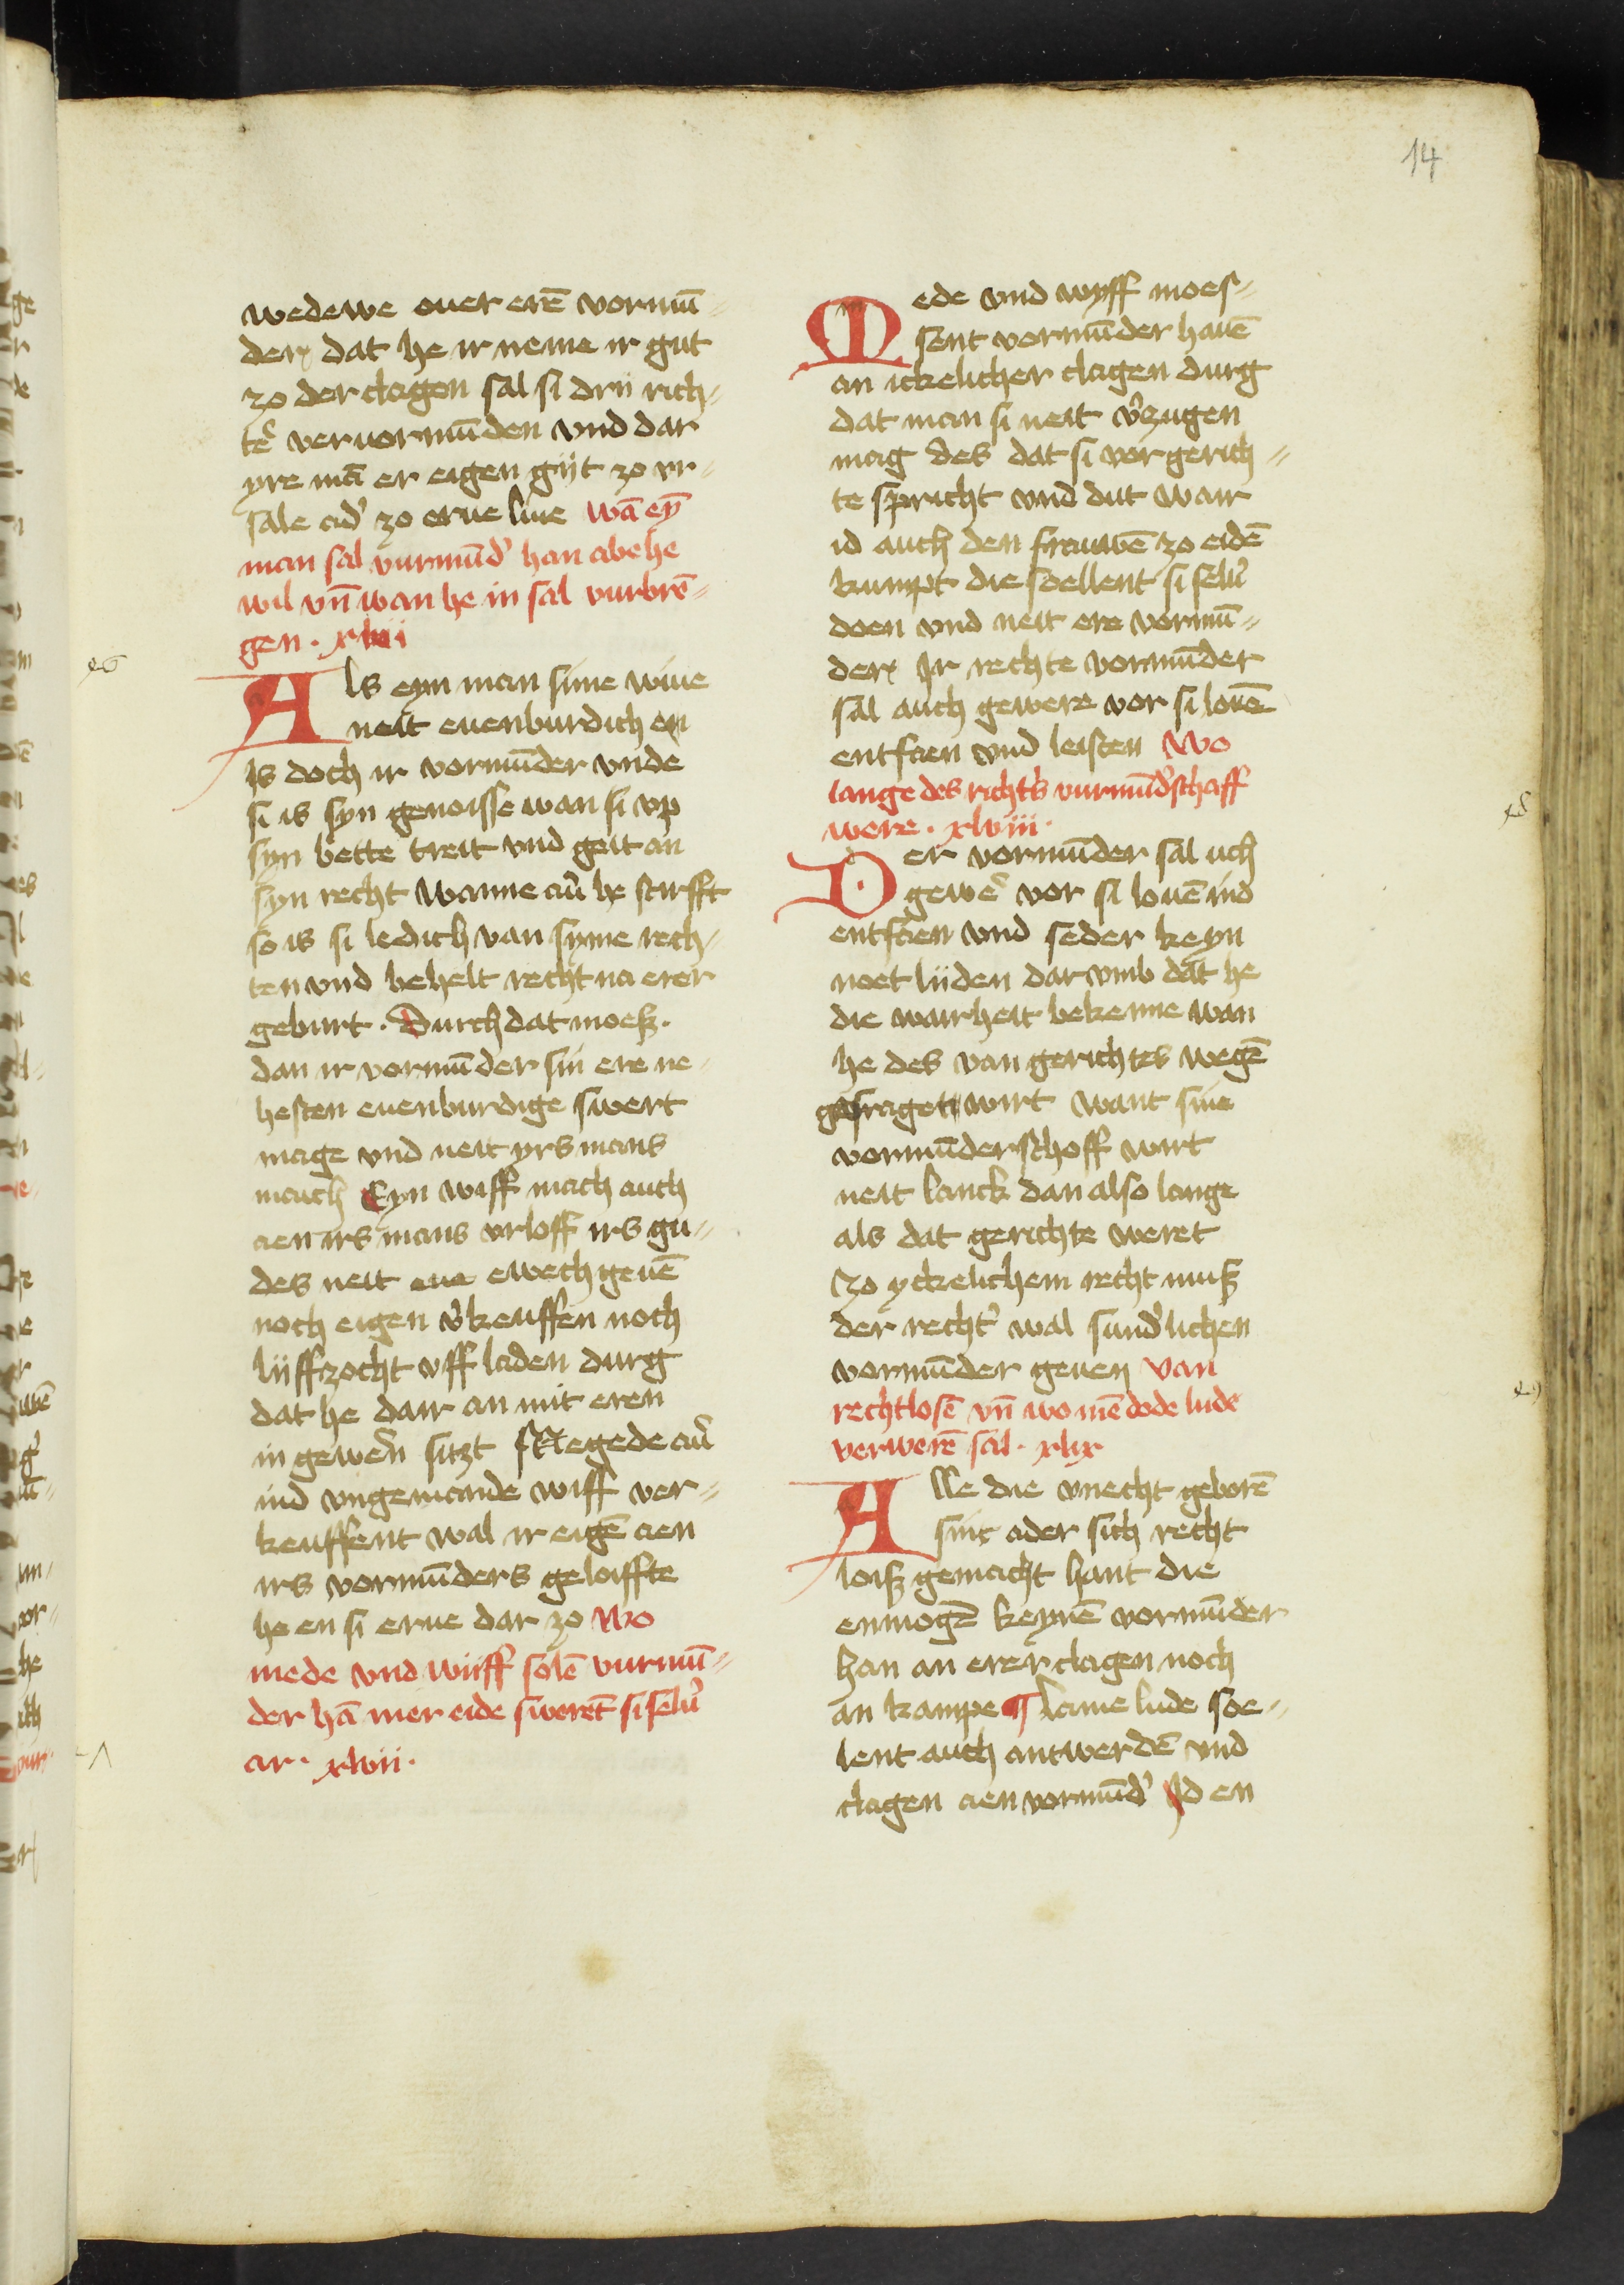 14
wedewe ouer erē vormū-
der dat he ir neme ir gut
zo der clagen sal si drij rich-
tē veruormūden vnd dar
yre mā er eigen gijt zo vr-
sale ad' zo erue liue Wā eȳ
man sal vurmūd' han abe he
wil vn̄ wan he in sal vurbrē-
gen. xlvi
Als eyn man sime wiue
neit euenburdich en
is doch ir vormūder vnde
si is syn genoisse wan si vp
syn bette treit vnd geit an
syn recht Wanne au' he stirfft
so is si ledich van syme rech-
ten vnd behelt recht na erer
geburt. Durch dat moeß.
dan ir vormūder sin ere ne-
hesten euenburdige swert
mage vnd neit yrs mans
mach Eyn wiff mach auch
aen irs mans vrloff irs gu-
des neit ewech geuē
noch eigen v'keuffen noch
lijffzocht vff laden durg
dat he dair an mit eren
in gewe'n sitzt Megede au'
ind vngemande wiff ver-
keuffent wal ir eigē aen
irs vormūders geloiffte
he en si erue dar zo Wo
mede vnd wiiff solē vurmū-
der hā mer eide swerēt si selu'
ar. xlvii.
Mede vnd wyff moes-
sent vormūder hauē
an ickelicher clagen durg
dat man si neit v'zugen
mag des dat si vor gerich-
te spricht vnd dut Wair
id auch den frauwē zo eidē
kumpt die soellent si selu'
doen vnd neit ere vormū-
der Ir rechte vormūder
sal auch gewere vor si louē
entfaen vnd leisten Wo
lange des richt's vurmūd'schaff
were. xlviii.
Der vormūder sal uch
gewe' vor si louē ind
entfaen vnd seder keyn
noet lijden dar vmb dat he
die wairheit bekenne wan
he des van gerichtes wegē
gefraget wirt Want sine
vormūderschoff wirt
neit lanck dan also lange
als dat gerichte weret
Zo yckelichem recht muß
der recht' wal sund'lichen
vormūder geuen Van
rechtlosē vn̄ wo mē dode lude
verwerē sal. xlix
Alle die vnecht geborē
sint ader sich recht
loiß gemacht hant die
enmogē keynē vormūder
han an erer clagen noch
an kampe ¶ Lame lude soe-
lent auch antwerdē vnd
clagen aen vormūd' Id en